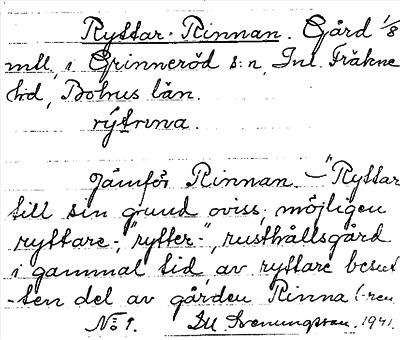 Ryttar-Rinnan. Gård 1/8
mtl, i Grinneröd s:n, Inl. Fräkne
hd, Bohus län.
rýtrɩna.
Jämför Rinnan. – "Ryttar
till sin grund oviss; möjligen
ryttare-, "rytter-", rusthållsgård
i gammal tid, av ryttare besut-
-ten del av gården Rinna (-ren
No 1. 1941.